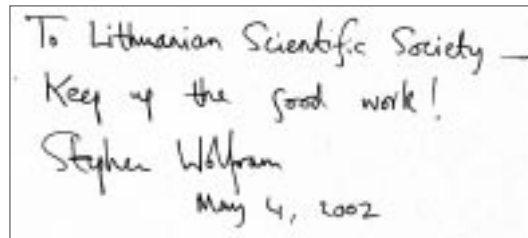 To Lithuanian Scientific Society —
Keep up the good work!
Stephen Wolfram
May 4, 2002